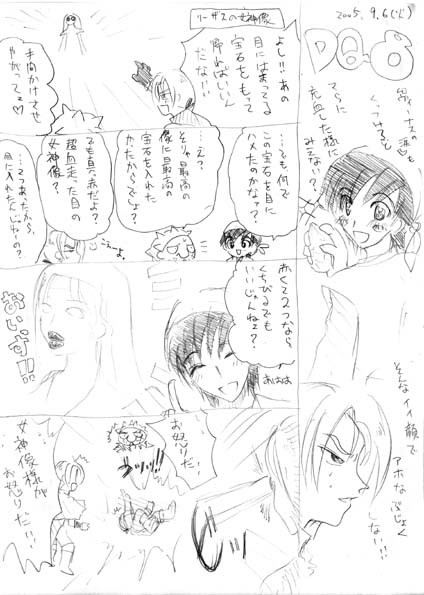 2005.9.6(火)
DQ-8
リーザスの女神像
よし!!あの
目にはまってる
宝石を持って
帰ればいい
だな!!
手間かけさせ
やがってよ♡
…でも何で
この宝石を目に
ハメたのかなぁ?
…え?
そりゃ最高の
像に最高の
宝石を入れた
かったからでしょ?
でも真っ赤だよ?
超血走った目の
女神像?
…2つあったから、
目に入れたんじゃねーの?
さらに
充血した様に
みえない?
赤くて2つなら
くちびるでも
いいじゃんねェ?
あはは
おいっす!!
そんなイイ顔で
アホな
ぶじょく
しない!!!
お怒りだ!
女神像様が
お怒りだい!